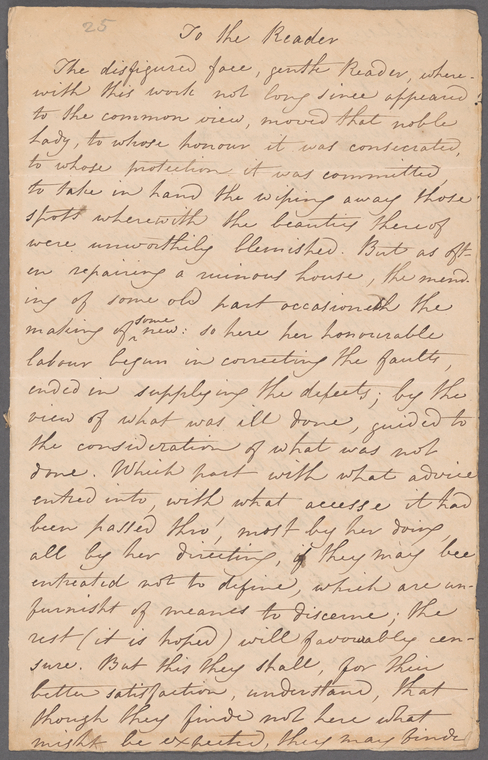 25
To the Reader
The disfigured face, gentle Reader, where-
with this work not long since appeared
to the common view, moved that noble
Lady, to whose honour it was consecrated,
to whose protection it was committed
to take in hand the wiping away those
spotts wherewith the beauties thereof
were unworthily blemished. But as oft-
en repairing a ruinous house, the mend-
ing of some old part occasioneth the
making of some new: so here her honourable
labour begun in correcting the faults,
ended in supplying the defects; by the
view of what was ill done, guided to
the consideration of what was not
done. Which part with what advice
entred into, with what success it had
been passed thro', most by her doing,
all by her directing, if they may bee
entreated not to define, which are un-
furnisht of means to discerne; the
rest (it is hoped) will favourably cen-
sure. But this they shall, for their
better satisfaction, understand, that
though they finde not here what
might be expected, they may finde